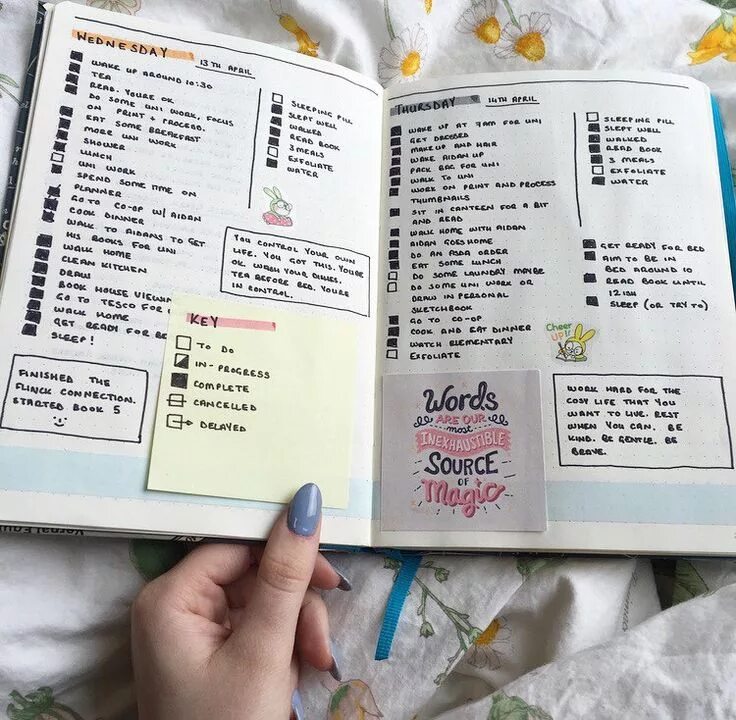 WEDNESDAY
13TH APRIL
WAKE UP AROUND 10:30
TEA
READ. YOU'RE OK
DO SOME UNI WORK, FOCUS
ON PRINT + PROCESS.
EAT SOME BREAKFAST
MORE UNI WORK
SHOWER
LUNCH
UNI WORK
SPEND SOME TIME ON
PLANNER
GO TO CO-OP W/ AIDAN
COOK DINNER
WALK TO AIDANS TO GET
HIS BOOKS FOR UNI
WALK HOME
CLEAN KITCHEN
DRAW
BOOK HOUSE VIEWIN
GO TO TESCO FOR
WALK HOME
GET READY FOR BE
SLEEP!
SLEEPING PILL
SLEPT WELL
WALKED
READ BOOK
3 MEALS
EXFOLIATE
WATER
YOU CONTROL YOUR OWN
LIFE. YOU GOT THIS. YOU'RE
OK. WASH YOUR DISHES.
TEA BEFORE BED. YOU'RE
IN CONTROL.
FINISHED THE
FLINCK CONNECTION.
STARTED BOOK 5
KEY
TO DO
IN-PROGRESS
COMPLETE
CANCELLED
DELAYED
THURSDAY
14TH APRIL
WAKE UP AT 7AM FOR UNI
GET DRESSED
MAKEUP AND HAIR
WAKE AIDAN UP
PACK BAG FOR UNI
WALK TO UNI
WORK ON PRINT AND PROCESS
THUMBNAILS
SIT IN CANTEEN FOR A BIT
AND READ
WALK HOME WITH AIDAN
AIDAN GOES HOME
DO AN ASDA ORDER
EAT SOME LUNCH
DO SOME LAUNDRY MAYBE
DO SOME UNI WORK OR
DRAW IN PERSONAL
SKETCHBOOK
GO TO CO-OP
COOK AND EAT DINNER
WATCH ELEMENTARY
EXFOLIATE
SLEEPING PILL
SLEPT WELL
WALKED
READ BOOK
3 MEALS
EXFOLIATE
WATER
GET READY FOR BED
AIM TO BE IN
BED AROUND 10
READ BOOK UNTIL
12ISH
SLEEP (OR TRY TO)
Cheer
UP!!
WORK HARD FOR THE
COSY LIFE THAT YOU
WANT TO LIVE. REST
WHEN YOU CAN. BE
KIND. BE GENTLE. BE
BRAVE.
Words
ARE OUR
most
INEXHAUSTIBLE
SOURCE
OF
Magic